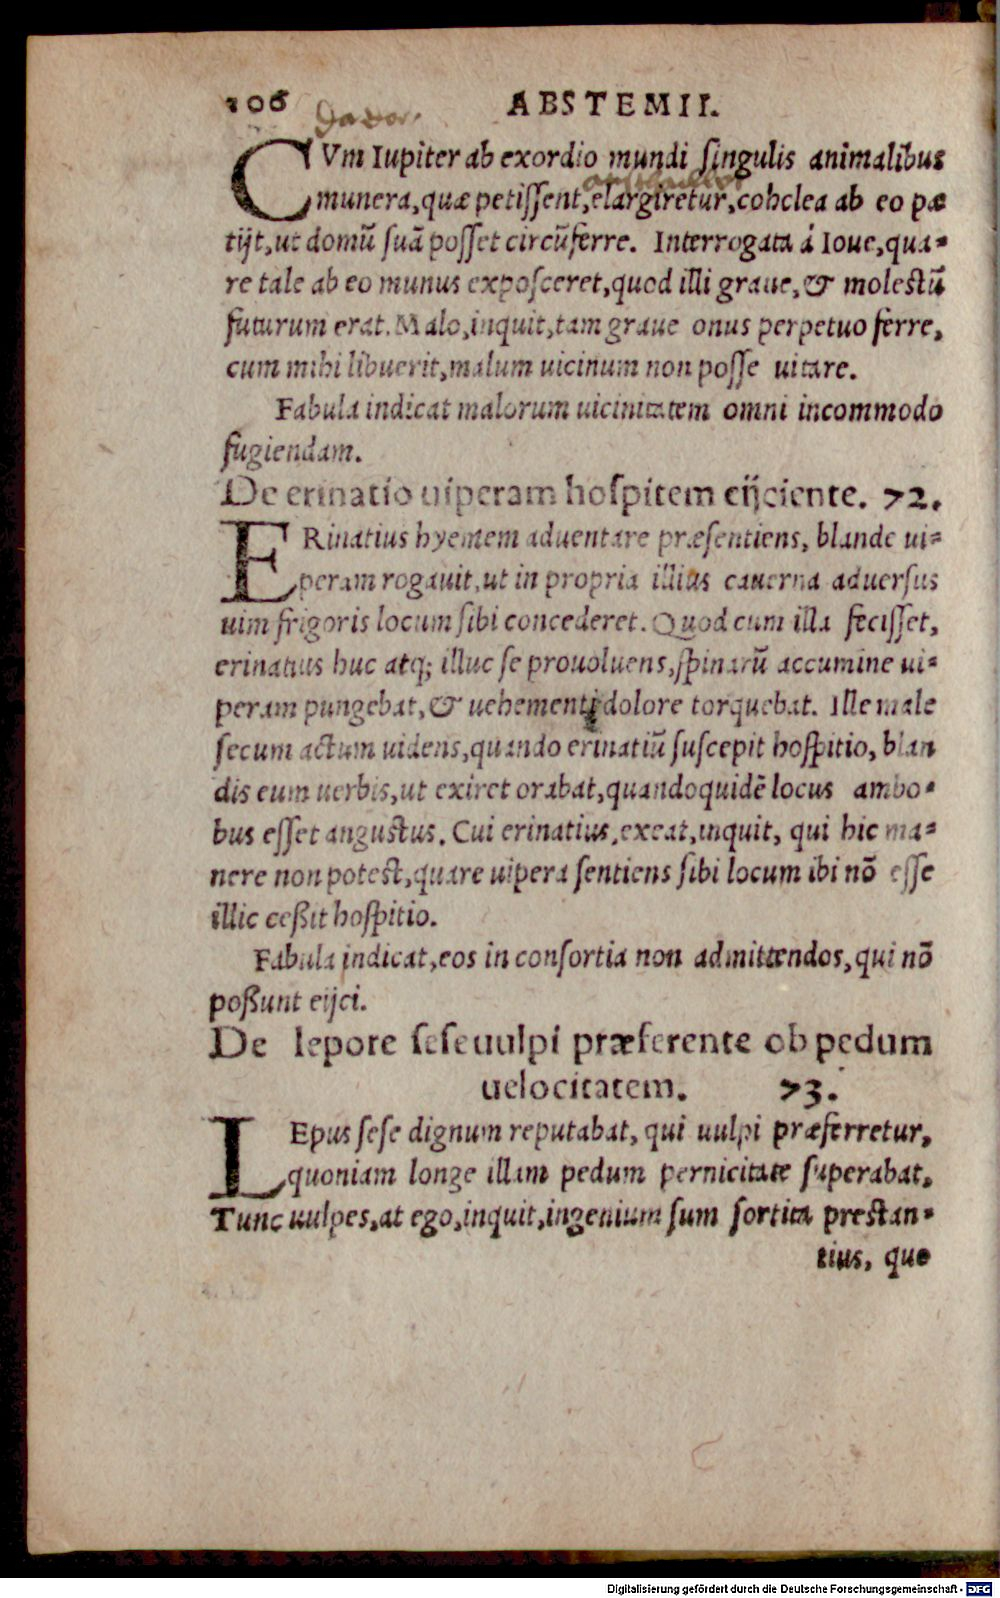 106 ABSTEMII.
CVm Iupiter ab exordio mundi singulis animalibus
munera, quæ petissent, elargiretur, cohclea ab eo pæ
tijt, ut domũ suã posset circũferre. Interrogata á Ioue, qua-
re tale ab eo munus exposceret, quod illi graue, & molestũ
futurum erat. Malo, inquit, tam graue onus perpetuo ferre,
cum mihi libuerit, malum uicinum non posse uitare.
Fabula indicat malorum uicinitatem omni incommodo
fugiendam.
De erinatio uiperam hospitem eijciente. 72.
ERinatius hyemem aduentare præsentiens, blande ui-
peram rogauit, ut in propria illius cauerna aduersus
uim frigoris locum sibi concederet. Quod cum illa fecisset,
erinatius huc atq; illuc se prouoluens, spinarũ accumine ui-
peram pungebat, & uehementi dolore torquebat. Ille male
secum actum uidens, quando erinatiũ suscepit hospitio, blan
dis eum uerbis, ut exiret orabat, quandoquidẽ locus ambo-
bus esset angustus. Cui erinatius, exeat, inquit, qui hic ma-
nere non potest, quare uipera sentiens sibi locum ibi nõ esse
illic ceßit hospitio.
Fabula indicat, eos in consortia non admittendos, qui nõ
poßunt eijci.
De lepore sese uulpi præferente ob pedum
uelocitatem. 73.
LEpus sese dignum reputabat, qui uulpi præferretur,
quoniam longe illam pedum pernicitate superabat.
Tunc uulpes, at ego, inquit, ingenium sum sortita prestan-
tius, quo
Digitalisierung gefördert durch die Deutsche Forschungsgemeinschaft - DFG